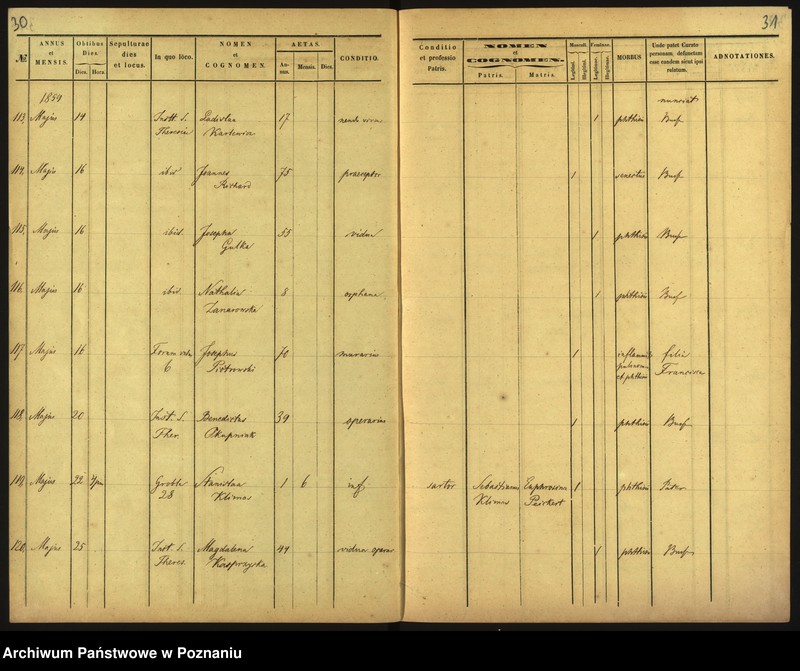 30
31
ANNUS et MENSIS.
Obitus Dies.
Dies. Hora.
Sepulturae dies et locus.
In quo loco.
NOMEN et COGNOMEN.
AETAS.
Annus. Mensis. Dies.
CONDITIO.
Conditio et professio Patris.
NOMEN et COGNOMEN.
Patris. Matris.
Mascul. Femin.
Legitimi. Illegitimi. Legitimae. Illegitimae.
MORBUS
Unde patet Curato personam defunctam esse eandem sicut ipsi relatum.
ADNOTATIONES.
1859
113. Majus 14 Instt. S. Ladislaa 17 phthisis Busf
Karlewicz
114. Majus 16 ibid. Joannes 75 praeceptor 1 senectus Busf
Richard
115. Majus 16 ibid. Josepha 55 vidua 1 phthisis Busf
Gulka
116. Majus 16 ibid. Nathalia 8 orphana 1 phthisis Busf
Zanarowska
117. Majus 16 Josephus 70 murarius 1 filia
6 Piotrowski et phthisis Francisca
118. Majus 20 Inst. S. Benedictus 39 operarius 1 phthisis Busf
Ther. Skupniak
119. Majus 22 Grobla Stanislaa 1 6 inf. sartor Sebastianus Euphrosina 1 phthisis Pater
28 Klimas Klimas Peickert
120. Majus 25 Inst. S. Magdalena 44 vidua oper. 1 phthisis Busf
Theres. Kasprzycka
Archiwum Państwowe w Poznaniu